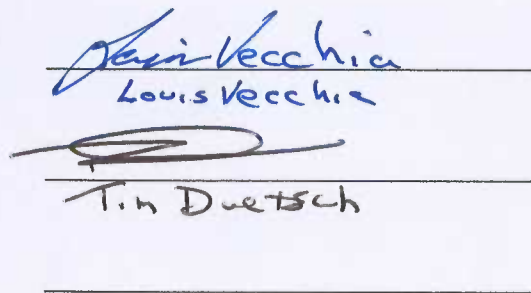 Louis Vecchia
Louis Vecchia
Tim Duetsch